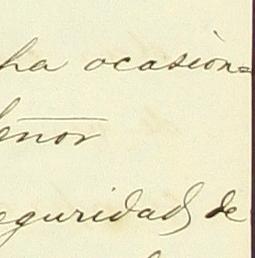 ha ocasion=
enor
eguridad de